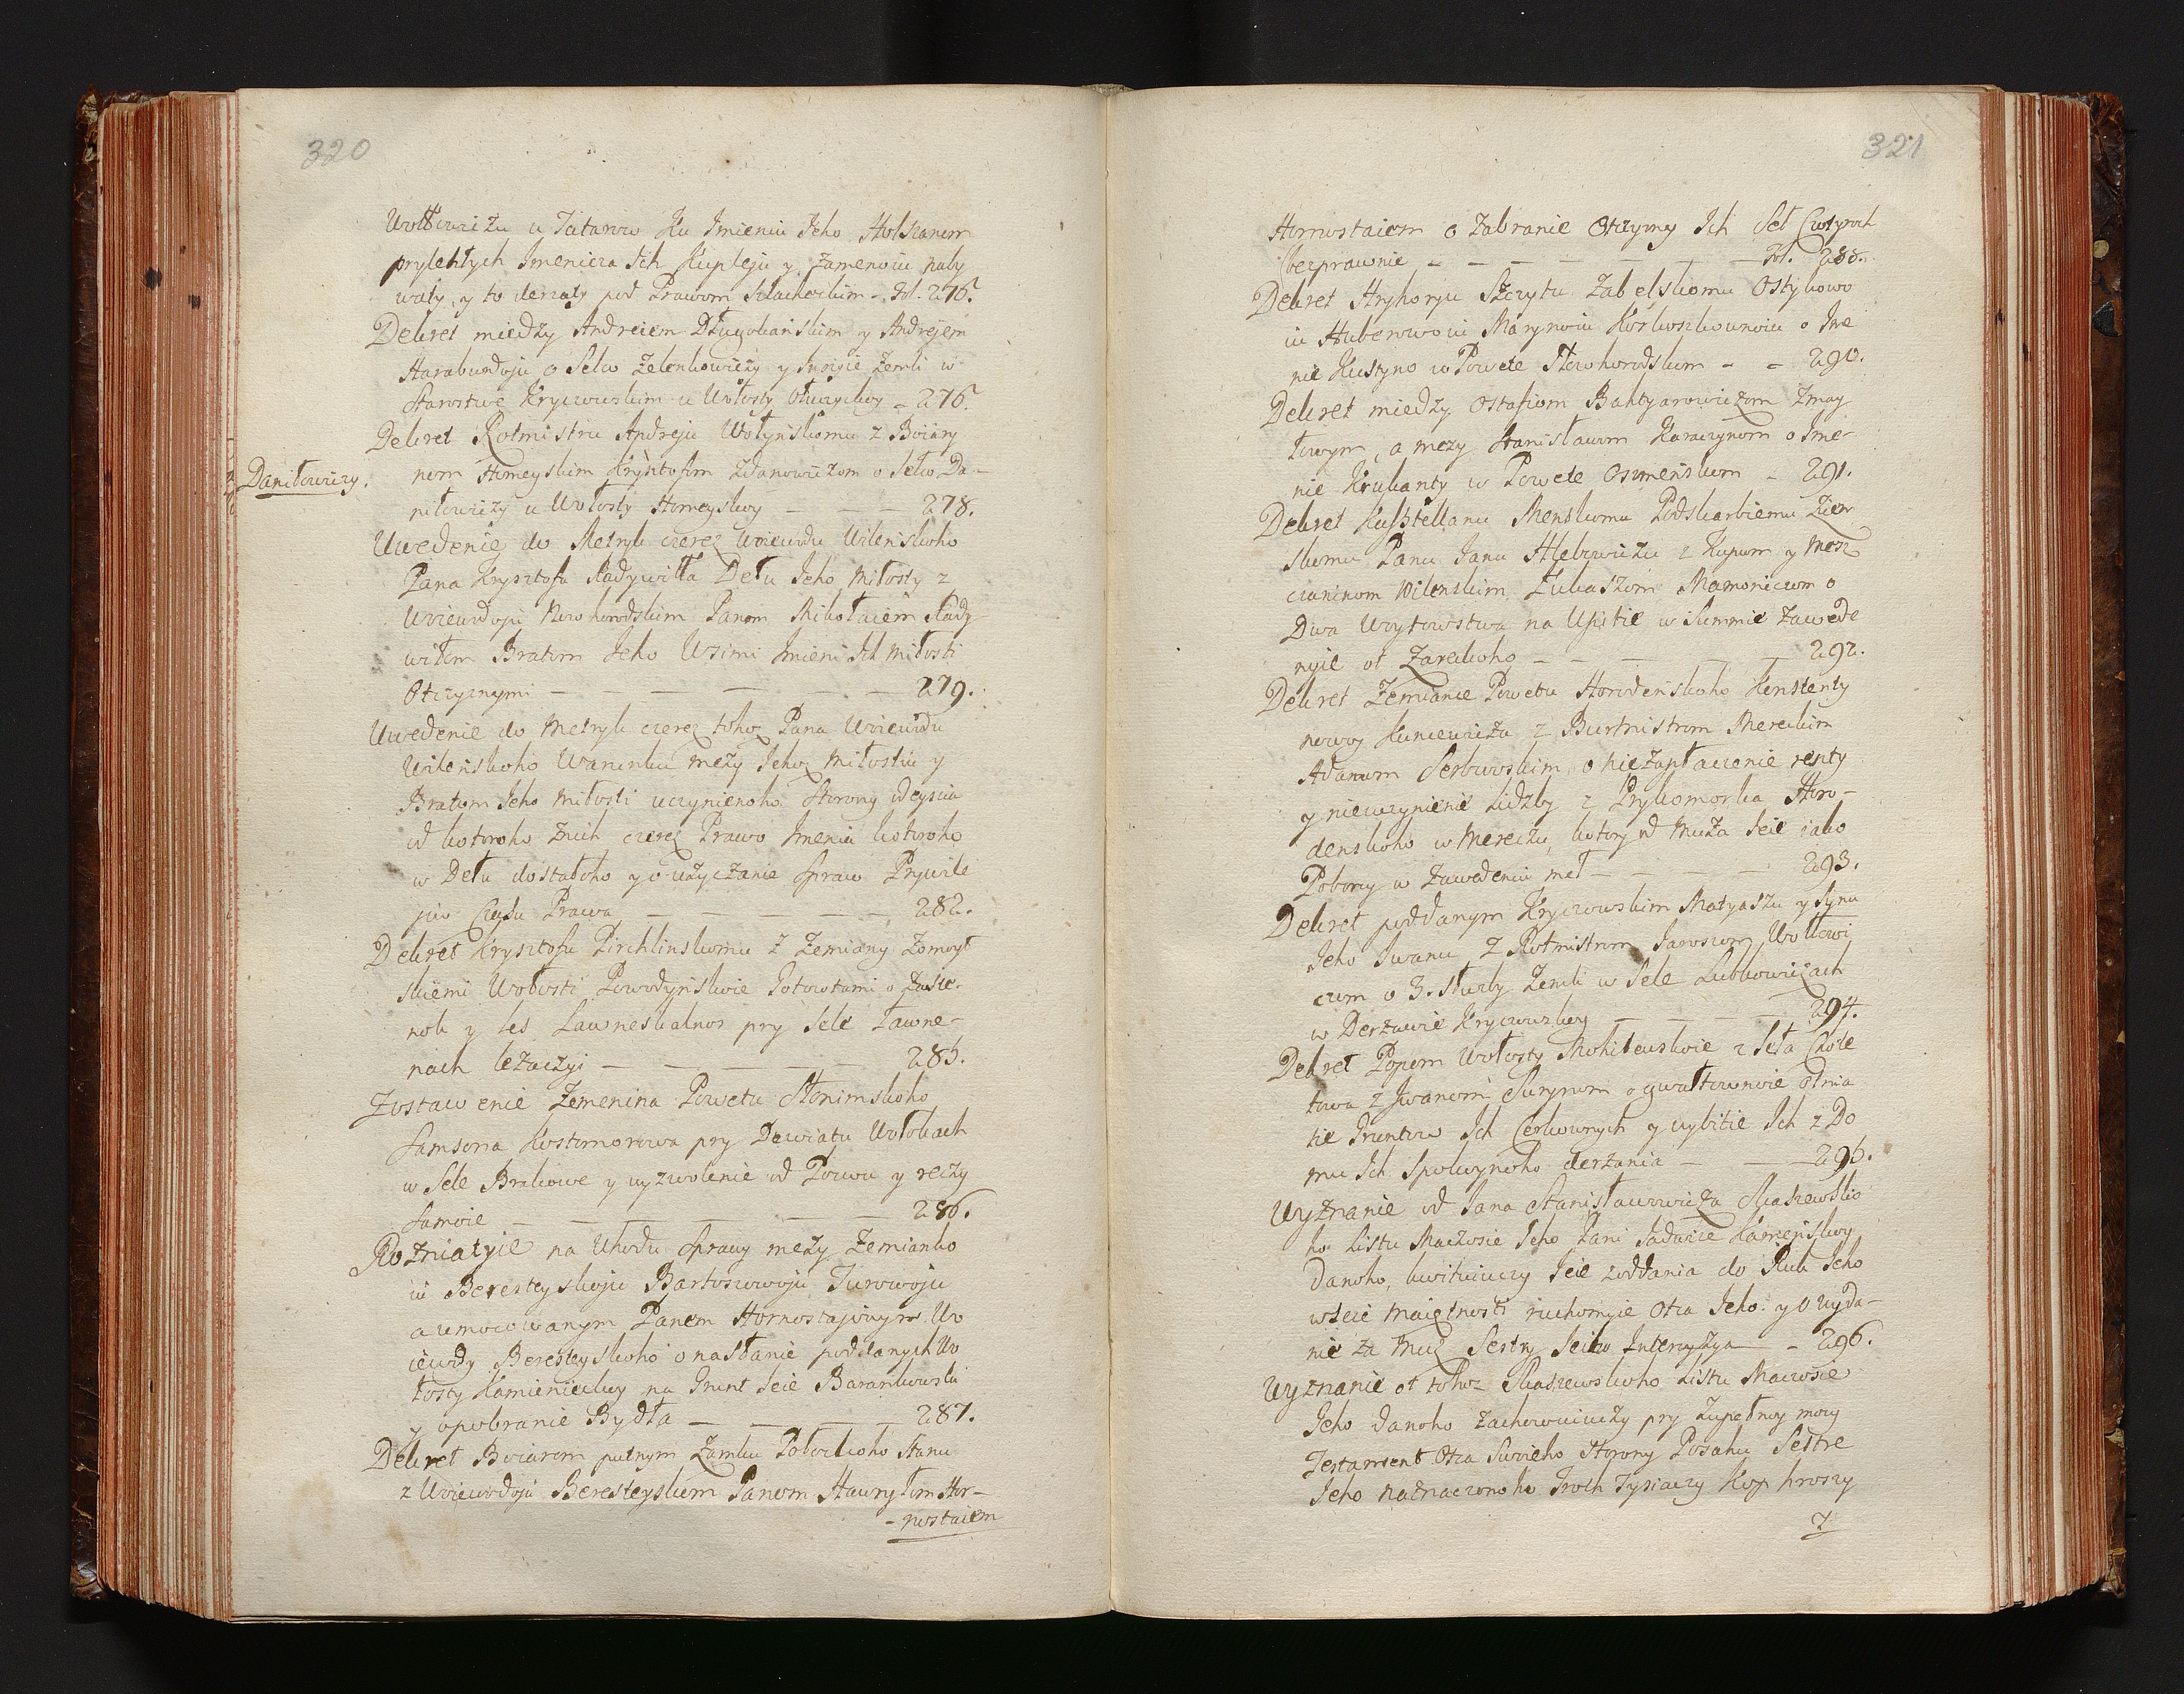 320
Wołłowiczu u Tatarow Ku Imieniu Jeho Holszanom
prylehłych Imenicza Ich Kupleju y zamenoiu naby
wały, y to derzały pod Prawom Szlacheckim - Fol. 276.
Dekret miedzy Andreiem Dłuhokańskim y Andrejem
Haraburdoju o Seło Zelenkowiczy y Insyie Zemli w
Starostwe Kryczewskim u Wołosty Ołuczyckoy - 276.
Dekret Rotmistru Andreju Wołynskomu z Boiary
Daniłowiczy.
nom Homeyskim Krysztofom Zdanowiczom o Seło Da-
niłowiczy u Wołosty Homeyskoy - - - 278.
Uwedenie do Metryk czerez Woiewodu Wilenskoho
Pana Krysztofa Radywiłła Dełu Jeho Miłosty z
Woiewodoju Nowohorodskim Panom Mikołaiem Rady-
wiłom Bratom Jeho Wsimi Imieni Ich Miłosti
Otczyznymi - - - - - - 279.
Uwedenie do Metryk czerez tohoż Pana Woiewodu
Wilenskoho Warunku meży Jehoż Miłostiu y
Bratom Jeho Miłosti uczynienoho Storony odeyscia
od kotoroho z nich czerez Prawo Imenia kotoroho
w Dełu dostałoho y o użyczanie Spraw Prywile
jow Czasu Prawa - - - - - 282.
Dekret Krysztofu Pirchlinskomu z Zemiany Zomoyt
skiemi Wołosti Powodyńskoie Potowtami o Zaste-
nok y Les Lawneskalnos pry Sele Lawne-
nach leżaczyi - - - - - 285.
Zostawenie Zemenina Powetu Słonimskoho
Samsona Kostomorowa pry Dewiatu Wołokach
w Sele Brakowe y wyzwolenie od Pozwu y reczy
Samoie - - - - - - 286.
Rozniatyie na Uhodu Sprawy meży Zemianko
iu Beresteyskoju Bartoszowoju Turowoju
a umocowanym Panem Hornostajowym Wo
iewody Beresteyskoho o nasłanie poddanych Wo
łosty Kamienieckoy na Grunt Jeie Barankowski
y o pobranie Bydła - - - - 287.
Dekret Boiarom putnym Zamku Połockoho Stanu
z Woiewodoju Beresteyskim Panom Hawryłom Hor-
-nostaiem
321
Hornostaiem o Zabranie Otczyzny Ich Seł Czotyroch
bezprawnie - - - - - - Fol. 288.
Dekret Hryhoryu Szczytu Zabelskomu Ostykowo
iu Huberowoiu Marynoiu Koskoszkownoiu o Ime
nie Kustyno w Powete Nowhorodskom - - 290.
Dekret miedzy Ostafiom Bahtyarowiczom Zmay
łowym, a mezy Stanisławom Karaczynom o Ime-
nie Krukanty w Powete Osmenskom - 291.
Dekret Kasztellanu Menskomu Podskarbiemu Ziem
skomu Panu Janu Hlebowiczu z Kupcom y Mesz
czaninom Wilenskim Łukaszom Mamoniczom o
Dwa Woytowstwa na Upitie w Summie Zawede
nyie ot Zareckoho - - - - 292.
Dekret Zemiance Powetu Horodenskoho Kenstenty
nowoy Kuncewiczа z Burmistrom Mereckim
Adamom Serbowskim, o niezapłaczenie renty
y nieuczynienie Lidzby z Prykomorka Horo-
denskoho w Mereczu, kotory od Muża Jeie jako
Poborcy w Zawedeniu meł - - - - 293.
Dekret poddanym Kryczowskim Matyaszu y Synu
Jeho Iwanu z Rotmistrom Jaroszom Wołłowi
czom o 3. służby Zemli w Sele Lubkowiczach
w Derżawie Kryczowskoy - - - - 294.
Dekret Popom Wołosty Mohilewskoie z Seła Chole
towa z Iwanom Surynom o gwałtownoie otnia
tie Gruntow Ich Cerkownych y wybitie Ich z Do
mu Ich Spokoynoho derżania - - - 295.
Wyznanie od Jana Stanisławowicza Skaszewsko
ho Listu Maczosie Jeho Pani Jadwize Kamenskoy
Danoho, kwitiuiuczy Jeie z oddania do Ruk Jeho
wseie maiętnosti ruchomyie Otca Jeho y o wyda-
nie za Muż Sestry Jeiko Intercyzya - - 296.
Wyznanie ot tohoż Skaszewskoho Listu Maczosie
Jeho Danoho Zachowuiuczy pry Zupełnoy mocy
Testament Otca Swoieho Storony Posahu Sestre
Jeho naznaczonoho Troch Tysiaczy Kop hroszy
7